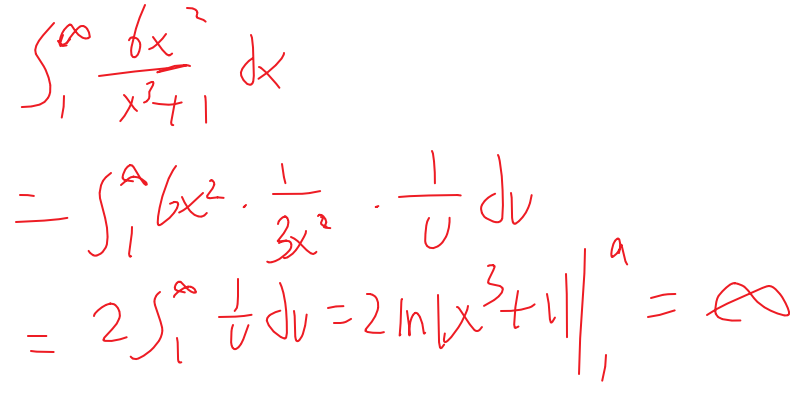 ∫₁^∞ 6x²/(x³+1) dx
= ∫₁^a 6x² · 1/(3x²) · 1/u du
= 2∫₁^∞ 1/u du = 2 ln|x³+1| |₁^a = ∞